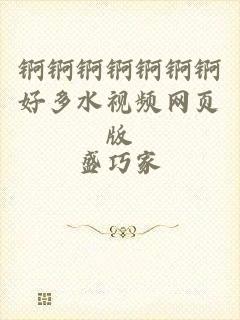 锕锕锕锕锕锕锕
好多水视频网页
版
盛巧家